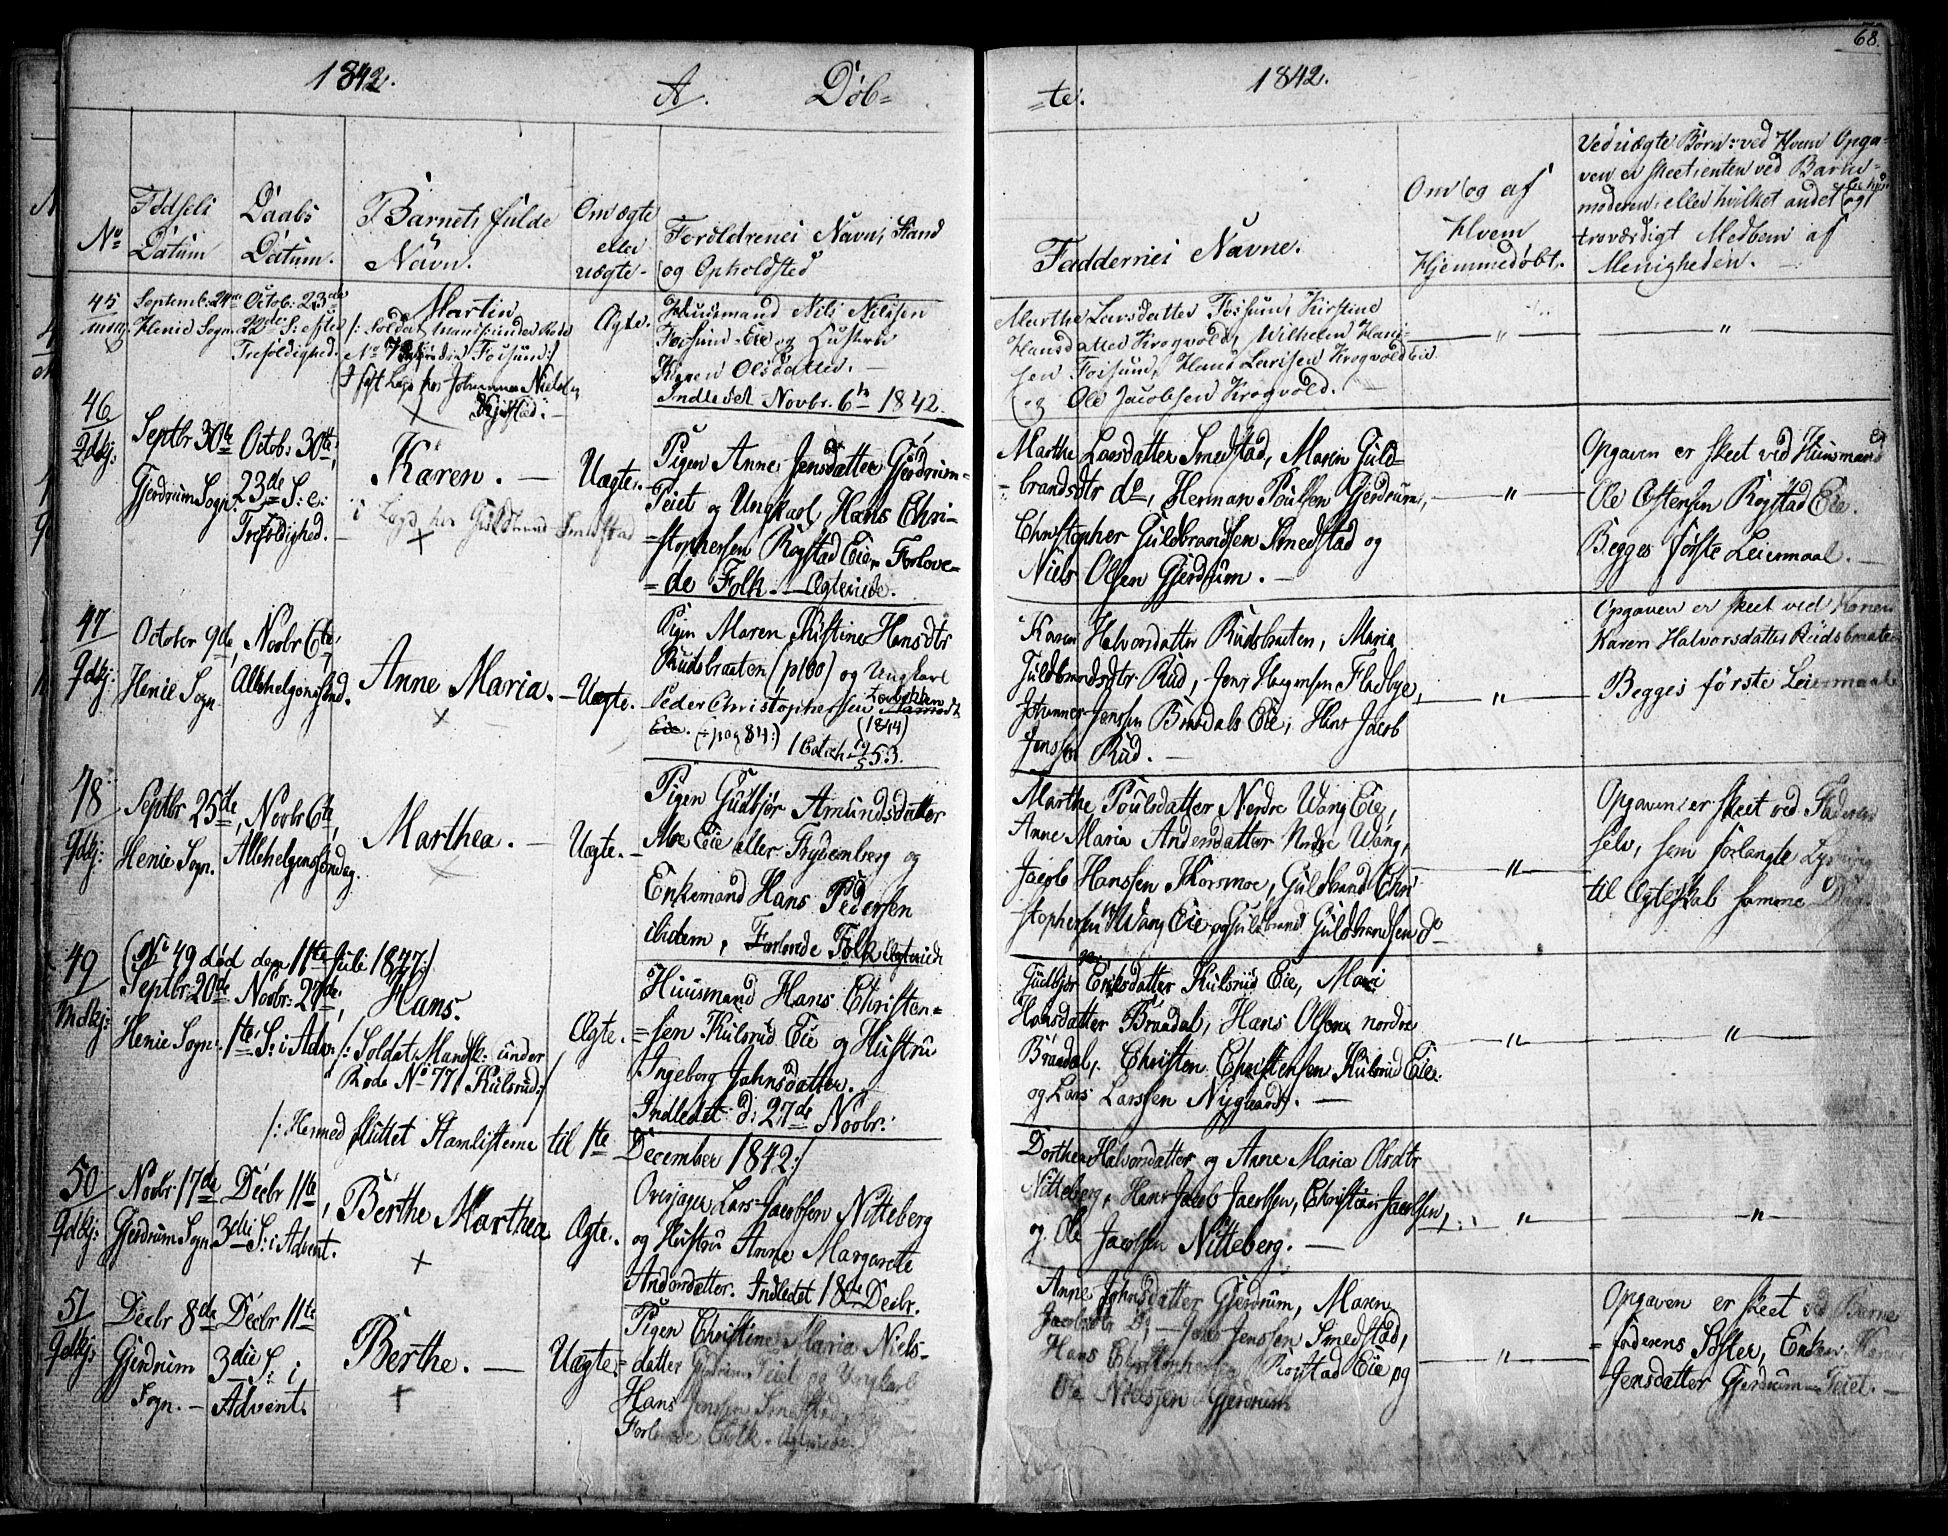 68.
1842.
A. Döb=
=te.
1842.
No
Fødsels
Datum
Daabs
Datum.
Barnets fulde
Navn.
Om ægte
eller
uægte.
Forældrenes Navn, Stand
og Opholdsted
Faddernes Navne.
Om og af
Hvem
Hjemmedøbt.
Ved uægte Børn: ved Hvem Opga-
ven er skeet, enten ved Barne-
moderen, eller hvilket andet
troværdigt Medlem af
Menigheden.
45
Septemb: 24de
Henie Sogn.
Octob: 23de
22de S: efter
Trefoldighed.
Martin
/: Soldat under Rode
No Foisum:/
Johannes Nielsen
Ægte.
Huusmand Nils Nilssen
Foisum Eie og Hustru
Karen Olsdatter. —
Indledet Novbr. 6te 1842.
Marthe Larsdatter Foisum, Kirstine
Hansdatter Krogvold, Wilhelm Han-
sen Foisum, Hans Larssen Krogvold Eie
og Ole Jacobsen Krogvold. —
— " —
"
46
Septbr 30te
Gjerdrum Sogn.
Octob: 30te,
23de S: e:
Trefoldighed.
Karen. —
i Lægd hos Guldbrand Smedstad
Uægte.
Pigen Anne Jensdatter Gjerdrum-
Teiet og Ungkarl Hans Chri-
=stophersen Rogstad Eie. Forlove-
=de Folk. — Ægteviede.
Marthe Larsdatter Smedstad, Maren Guld-
brandsdtr do, Herman Poulsen Gjerdrum,
Christopher Guldbrandsen Smedstad og
Niels Olsen Gjerdrum. —
— " —
Opgaven er skeet ved Huusmand
Ole Ostensen Rogstad Eie.
Begges første Leiermaal. —
47
October 9de,
Henie Sogn
Novbr 6te,
Allehelgonssønd.
Anne Maria. —
Uægte.
Pigen Maren Kirstine Hansdtr
Rudsbraaten (p 160) og Ungkarl
Peder Christophersen
Eie. (: pag 84:) (1844)
Karen Halvorsdatter Rudsbraaten, Maria
Guldbrandsdtr Rud, Jens Hagensen Fladbye,
Johannes Jensen Brædals Eie, Hans Jacob
Jensen Rud. —
— " —
Opgaven er skeet ved Konen
Karen Halvorsdatter Rudsbraaten
Begges første Leiermaal
48
Septbr 25de,
Henie Sogn.
Novbr 6te,
Allehelgenssøndag.
Marthea. —
Uægte. —
Pigen Gudbjør Amundsdatter
Moe Eie eller Frydenberg og
Enkemand Hans Pedersen
ibidem, Forlovede Folk Ægteviede
Marthe Poulsdatter Nerdre Wang Eie,
Anne Maria Andersdatter Nedre Wang,
Jacob Hanssen Skorsmoe, Guldbrand Chri
stophersen Wang Eie og Guldbrand Guldbrandsen do
— " —
Opgaven er skeet ved Faderen
selv, som forlangte Lysning
til Ægteskab samme Dag.
49
(No 49 død den 11te Juli 1847:)
Septbr: 20de
Henie Sogn.
Novbr: 27de,
1te S: i Adv.
Hans.
/: Soldat Mandsk: under
Rode No 77 Kulsrud:/
Ægte.
Huusmand Hans Christen=
=sen Kulsrud Eie og Hustru
Ingeborg Johnsdatter.
Indledet d: 27de Novbr:
Gudbjør Eriksdatter Kulsrud Eie, Mari
Hansdatter Braadal, Hans Olsen nordre
Braadal, Christen Christensen Kulsrud Eie
og Lars Larssen Nygaard. —
— " —
"
/: Hermed sluttet Stamlisterne til 1te December 1842:/
50
Novbr. 17de
Gjerdrum Sogn.
Decbr 11te,
3die S: i Advent.
Berthe Marthea
Ægte.
Overjæger Lars Jacobsen Nitteberg
og Hustru Anne Margarete
Andersdatter. Indledet 18de Decbr.
Dorthea Halvorsdatter og Anne Maria Olsdtr
Nitteberg, Hans Jacob Jacobsen, Christian Jacobsen,
og Ole Jacobsen Nitteberg. —
"
— " —
51
Decbr 8de
Gjerdrum
Sogn. —
Decbr 11te
3die S: i
Advent.
Berthe. —
Uægte=
Pigen Christine Maria Niels-
datter Gjerdrum Teiet og Ungkarl
Hans Jenssen Smedstad
Forlovede Folk. Ægteviede.
Anne Johnsdatter Gjerdrum, Maren
Jacobsdtr Do, — Jens Jenssen Smedstad,
Hans Christophersen Rogstad Eie og
Ole Nielssen Gjerdrum
— " —
Opgaven er skeet ved Barne
=faderens Søster, Enken
Jensdatter Gjerdrum Teiet. —